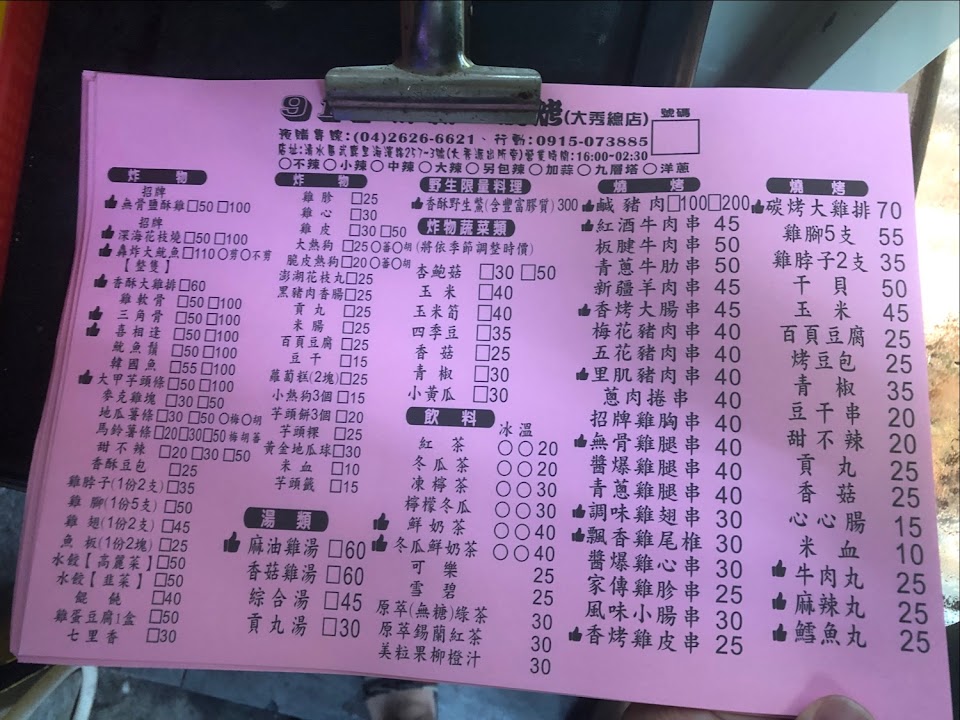 烤(大秀總店) 號碼
(04)2626-6621、行動:0915-073885
營業時間:16:00-02:30
○不辣○小辣○中辣○大辣○另包辣○加蒜○九層塔○洋蔥
炸物
招牌
無骨鹽酥雞□50□100
招牌
深海花枝燒□50□100
轟炸大魷魚□110○剪○不剪
【整隻】
香酥大雞排□60
雞軟骨□50□100
三角骨□50□100
喜相逢□50□100
魷魚鬚□50□100
韓國魚□55□100
大甲芋頭條□50□100
麥克雞塊□30□50
地瓜薯條□30□50○梅○胡
馬鈴薯條□20□30□50梅胡蕃
甜不辣□20□30□50
香酥豆包□25
雞脖子(1份2支)□35
雞腳(1份5支)□50
雞翅(1份2支)□45
魚板(1份2塊)□25
水餃【高麗菜】□50
水餃【韭菜】□50
餛飩□40
雞蛋豆腐1盒□50
七里香□30
炸物
雞胗□25
雞心□30
雞皮□30□50
大熱狗□25○蕃○胡
脆皮熱狗□20○蕃○胡
澎湖花枝丸□25
黑豬肉香腸□25
貢丸□25
米腸□25
百頁豆腐□25
豆干□15
蘿蔔糕(2塊)□25
小熱狗3個□15
芋頭餅3個□20
芋頭粿□25
黃金地瓜球□30
米血□10
芋頭籤□15
湯類
麻油雞湯□60
香菇雞湯□60
綜合湯□45
貢丸湯□30
野生限量料理
香酥野生鱉(含豐富膠質)300
炸物蔬菜類
(將依季節調整時價)
杏鮑菇□30□50
玉米□40
玉米筍□40
四季豆□35
香菇□25
青椒□30
小黃瓜□30
飲料 冰溫
紅茶○○20
冬瓜茶○○20
凍檸茶○○30
檸檬冬瓜○○30
鮮奶茶○○40
冬瓜鮮奶茶○○40
可樂25
雪碧25
原萃(無糖)綠茶30
原萃錫蘭紅茶30
美粒果柳橙汁30
燒烤
鹹豬肉□100□200
紅酒牛肉串45
板腱牛肉串50
青蔥牛肋串50
新疆羊肉串45
香烤大腸串45
梅花豬肉串40
五花豬肉串40
里肌豬肉串40
蔥肉捲串40
招牌雞胸串40
無骨雞腿串40
醬爆雞腿串40
青蔥雞腿串40
調味雞翅串30
飄香雞尾椎30
醬爆雞心串30
家傳雞胗串25
風味小腸串30
香烤雞皮串25
燒烤
碳烤大雞排70
雞腳5支55
雞脖子2支35
干貝50
玉米45
百頁豆腐25
烤豆包25
青椒35
豆干串20
甜不辣20
貢丸25
香菇25
心心腸15
米血10
牛肉丸25
麻辣丸25
鱈魚丸25